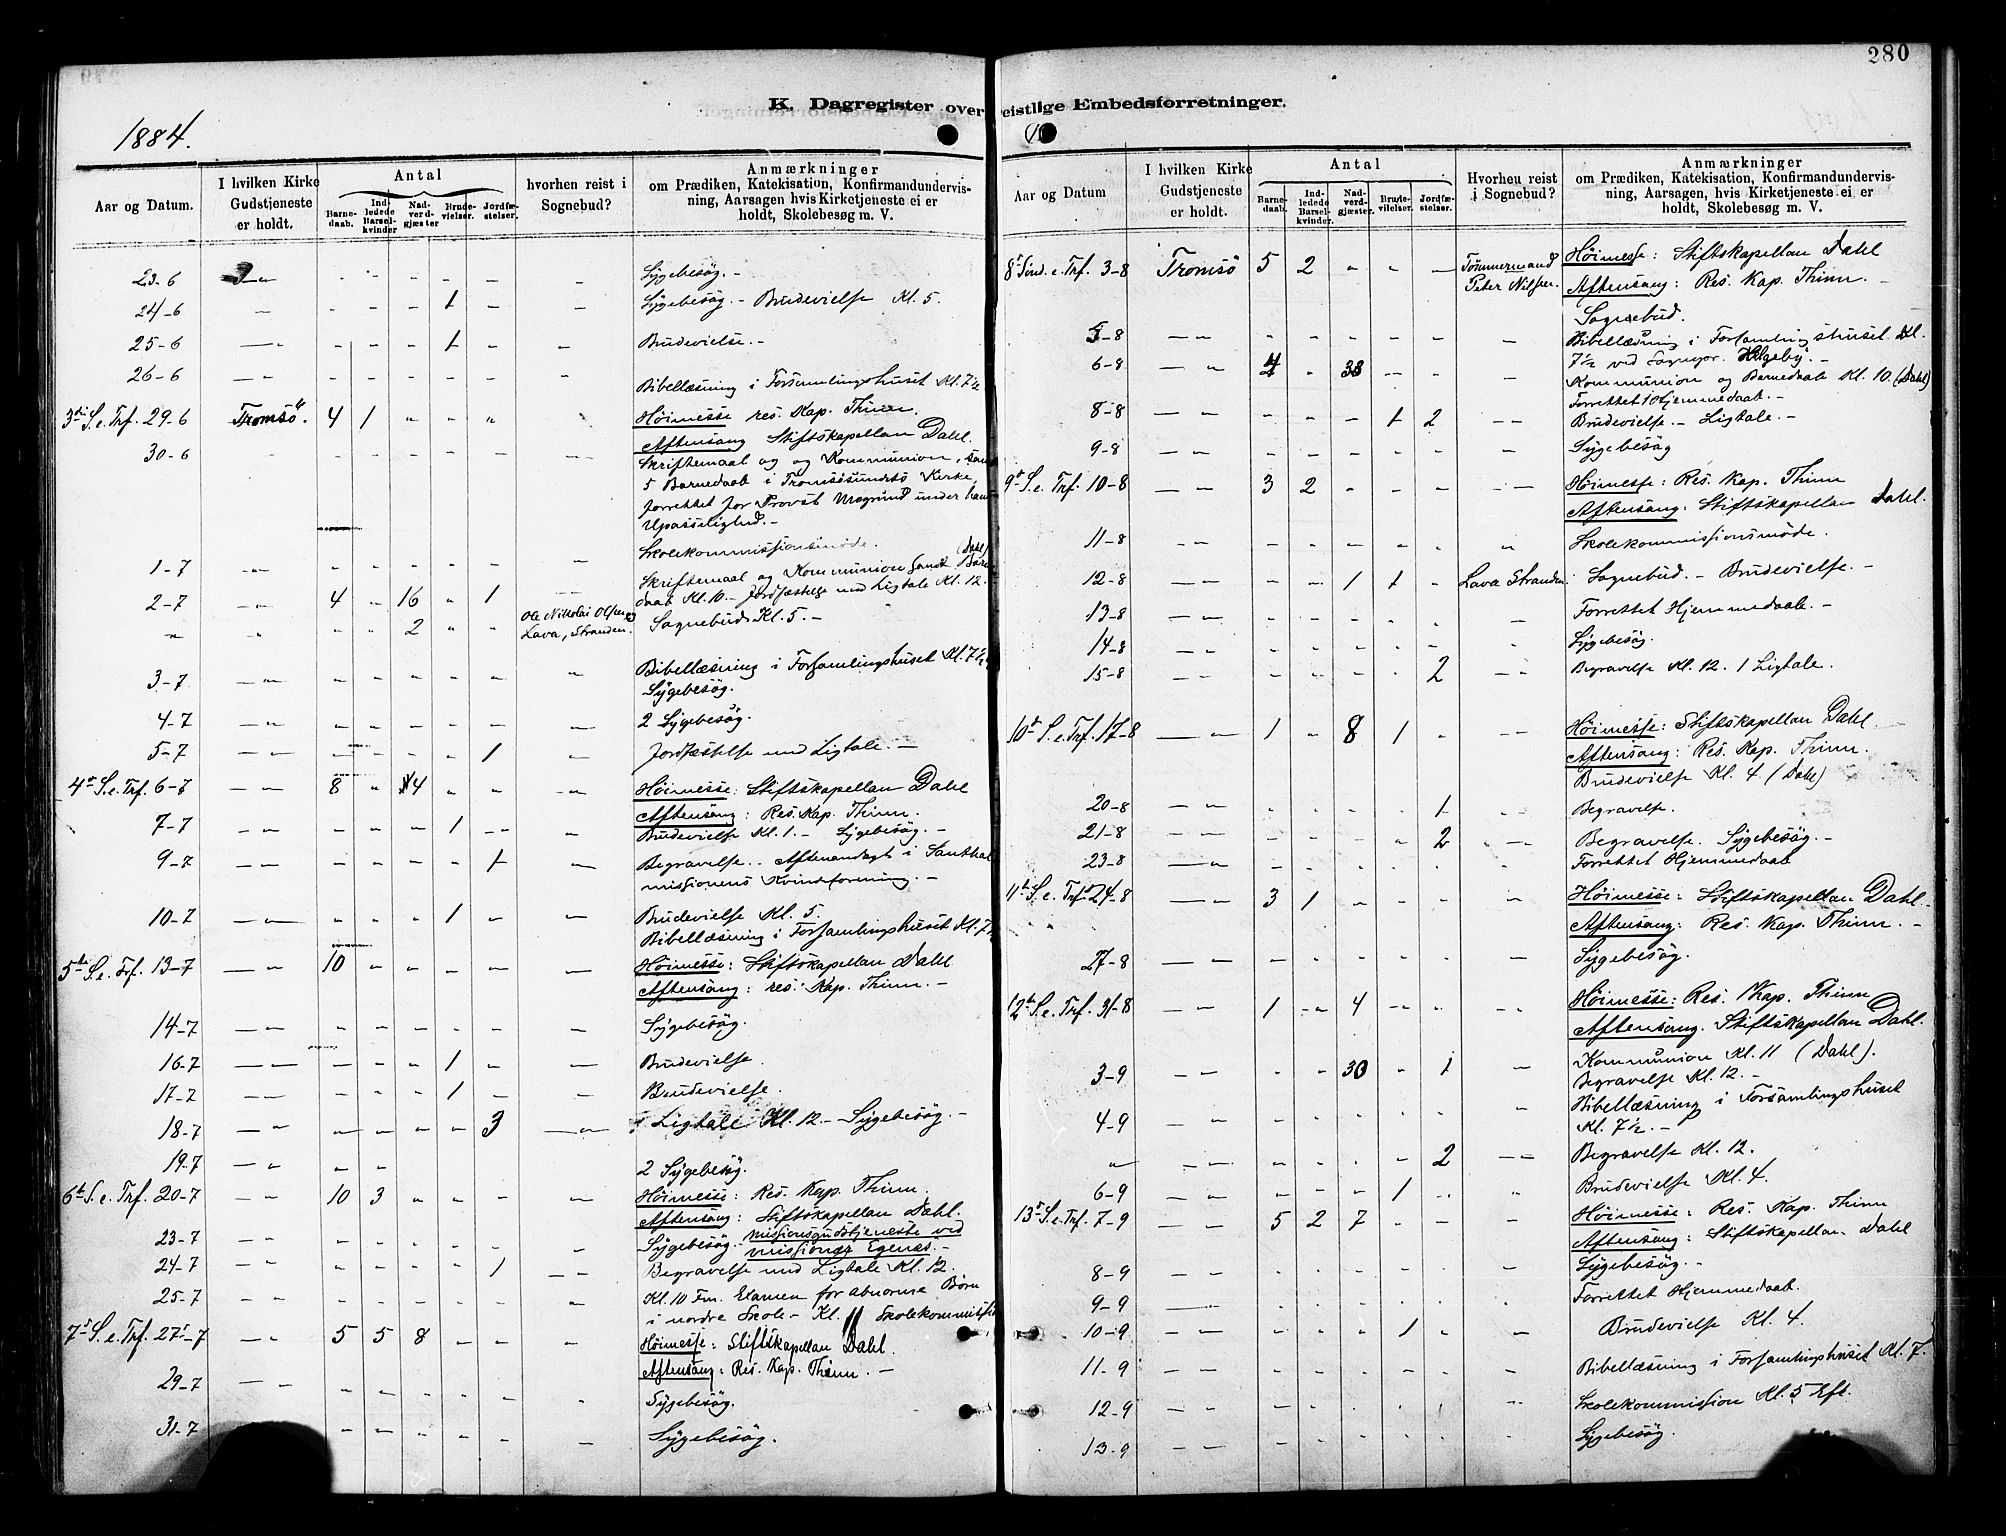 280
K. Dagregister over geistlige Embedsforretninger.
1884.
Aar og Datum.
I hvilken Kirke Gudstjeneste er holdt.
Antal
Barnedaab.
Indledede Barselkvinder
Nadverdgjæster
Brudevielser.
Jordfæstelser.
hvorhen reist i Sognebud?
Anmærkninger
om Prædiken, Katekisation, Konfirmandundervisning, Aarsagen hvis Kirketjeneste ei er holdt, Skolebesøg m. V.
23-6 " - - - - - - Sygebesøg. -
24-6 - - - - 1 - - Sygebesøg. - Brudevielse Kl. 5.
25-6 - " - - - 1 - - Brudevielse. -
26-6 - " - - - - - - Bibellæsning i Forsamlingshuset Kl. 7½
3die S. e. Trf. 29-6 Tromsö. 4 1 " - " Höimesse res. Kap. Thinn.
Aftensang Stiftskapellan Dahl.
30-6 Skriftemaal og og Kommunion, samt
5 Barnedaab i Tromsösundets Kirke,
forrettet for Provst under hans
Upasselighed. -
Skolekommissionsmöde.
1-7 - " - - - - - - (Dahl)
Skriftemaal og Kommunion samt Barne
2-7 - " 4 - 16 " 1 - daab Kl. 10. - Jordfæstelse med Ligtale Kl. 12.
" " - - 2 " " Ole Nikolai Olsen og Lava, Stranden. Sognebud Kl. 5. -
3-7 - " - - - - - " Bibellæsning i Forsamlingshuset Kl. 7½
Sygebesøg.
4-7 - " - - - - - - 2 Sygebesøg.
5-7 - " - - - - 1 - " Jordfæstelse med Ligtale. -
4de S. e. Trf. 6-7 - " 8 " 14 " " - " Höimesse: Stiftskapellan Dahl
Aftensang: Res. Kap. Thinn.
7-7 - " - - - 1 - " Brudevielse Kl. 1. - Sygebesøg. -
9-7 - " - - - - 1 - Begravelse. - Aftenandagt i Santhal
missionens Kvindeforening. -
10-7 - " - - - 1 - - Brudevielse Kl. 5.
Bibellæsning i Forsamlingshuset Kl. 7½
5te S. e. Trf. 13-7 - " 10 - - - - - Höimesse: Stiftskapellan Dahl
Aftensang: res. Kap. Thinn. -
14-7 - " - - - - - - Sygebesøg.
16-7 - " - - - 1 - - Brudevielse.
17-7 - " - - - 1 - - Brudevielse.
18-7 - " - - - - 3 - " Ligtale Kl. 12 - Sygebesøg. -
19-7 - " - - 2 Sygebesøg.
6te S. e. Trf. 20-7 - " 10 3 " - - " Höimesse: Res. Kap. Thinn.
Aftensang: Stiftskapellan Dahl.
23-7 - " - - - - - " Sygebesøg. - Missionsgudstjeneste ved
Missionær Egenes. -
24-7 - " - - - - 1 - " Begravelse med Ligtale Kl. 12.
25-7 - " - - - - - " Kl. 10 Fm. Examen for abnorme Børn
i nordre Skole - Kl. 11 Skolekommission
7de S. e. Trf. 27-7 - " 5 5 8 - - " Höimesse: Stiftskapellan Dahl.
Aftensang: Res. Kap. Thinn. -
29-7 - " - - - - - - Sygebesøg.
31-7 - - - - - - Sygebesøg.
Aar og Datum
I hvilken Kirke Gudstjeneste er holdt.
Antal
Barnedaab.
Indledede Barselkvinder
Nadverdgjæster
Brudevielser.
Jordfæstelser.
Hvorheu reist i Sognebud?
Anmærkninger
om Prædiken, Katekisation, Konfirmandundervisning, Aarsagen, hvis Kirketjeneste ei er holdt, Skolebesøg m. V.
8de Sönd. e. Trf. 3-8 Tromsö 5 2 - - - Tömmermand Peter Nilsen. Höimesse: Stiftskapellan Dahl
Aftensang: Res. Kap. Thinn. -
Sognebud.
5-8 - " - - - - - - Bibellæsning i Forsamlingshuset Kl.
7½ ved
6-8 - " 4 - 38 - - - Kommunion og Barnedaab Kl. 10. (Dahl)
Forrettet 1 Hjemmedaab. -
8-8 - " - - - 1 2 - - Brudevielse. - Ligtale. -
9-8 - " - - - - - - Sygebesøg
9de S. e. Trf. 10-8 - " 3 2 - - - - " Höimesse: Res. Kap. Thinn
Aftensang: Stiftskapellan Dahl.
11-8 - " - - - - - " Skolekommissionsmöde.
12-8 - " - - 1 1 - Lava Stranden. Sognebud. - Brudevielse. -
13-8 - " - - - - - " Forrettet Hjemmedaab. -
14-8 - " - - - - - " Sygebesøg.
15-8 - " - - - - 2 - " Begravelse Kl. 12. 1 Ligtale.
10de S. e. Trf. 17-8 - " 1 " 8 1 - - " Höimesse: Stiftskapellan Dahl
Aftensang: Res. Kap. Thinn.
Brudevielse Kl. 4. (Dahl)
20-8 - " - - - - 1 - Begravelse.
21-8 - " - - - - 2 - " Begravelse. Sygebesøg. -
23-8 - " - - - - - - Forrettet Hjemmedaab
11te S. e. Trf. 24-8 - " 3 1 - - - " Höimesse: Stiftskapellan Dahl.
Aftensang: Res. Kap. Thinn. -
27-8 - " - - - - - - Sygebesøg.
12te S. e. Trf. 31-8 - " 1 - 4 - - - " Höimesse: Res. Kap. Thinn
Aftensang. Stiftskapellan Dahl.
3-9 - " - - 30 - 1 - Kommunion Kl. 11 (Dahl).
Begravelse Kl. 12. -
4-9 - " - - - - - " Bibellæsning i Forsamlingshuset
Kl. 7½. -
" - " - - - - 2 - - Begravelse Kl. 12.
6-9 - " - - - 1 - " Brudevielse Kl. 4.
13de S. e. Trf. 7-9 - " 5 2 7 - - - Höimesse: Res. Kap. Thinn
Aftensang: Stiftskapellan Dahl
8-9 - " - - - - - - Sygebesøg. -
9-9 - " - - - - - - Forrettet Hjemmedaab.
10-9 - " - - - 1 - - Brudevielse Kl. 4.
11-9 - " - - - - - - Bibellæsning i Forsamlingshuset Kl. 7.
12-9 - " - - - - - - Skolekommission Kl. 5 Eft.
13-9 - " - - - - - - Sygebesøg.